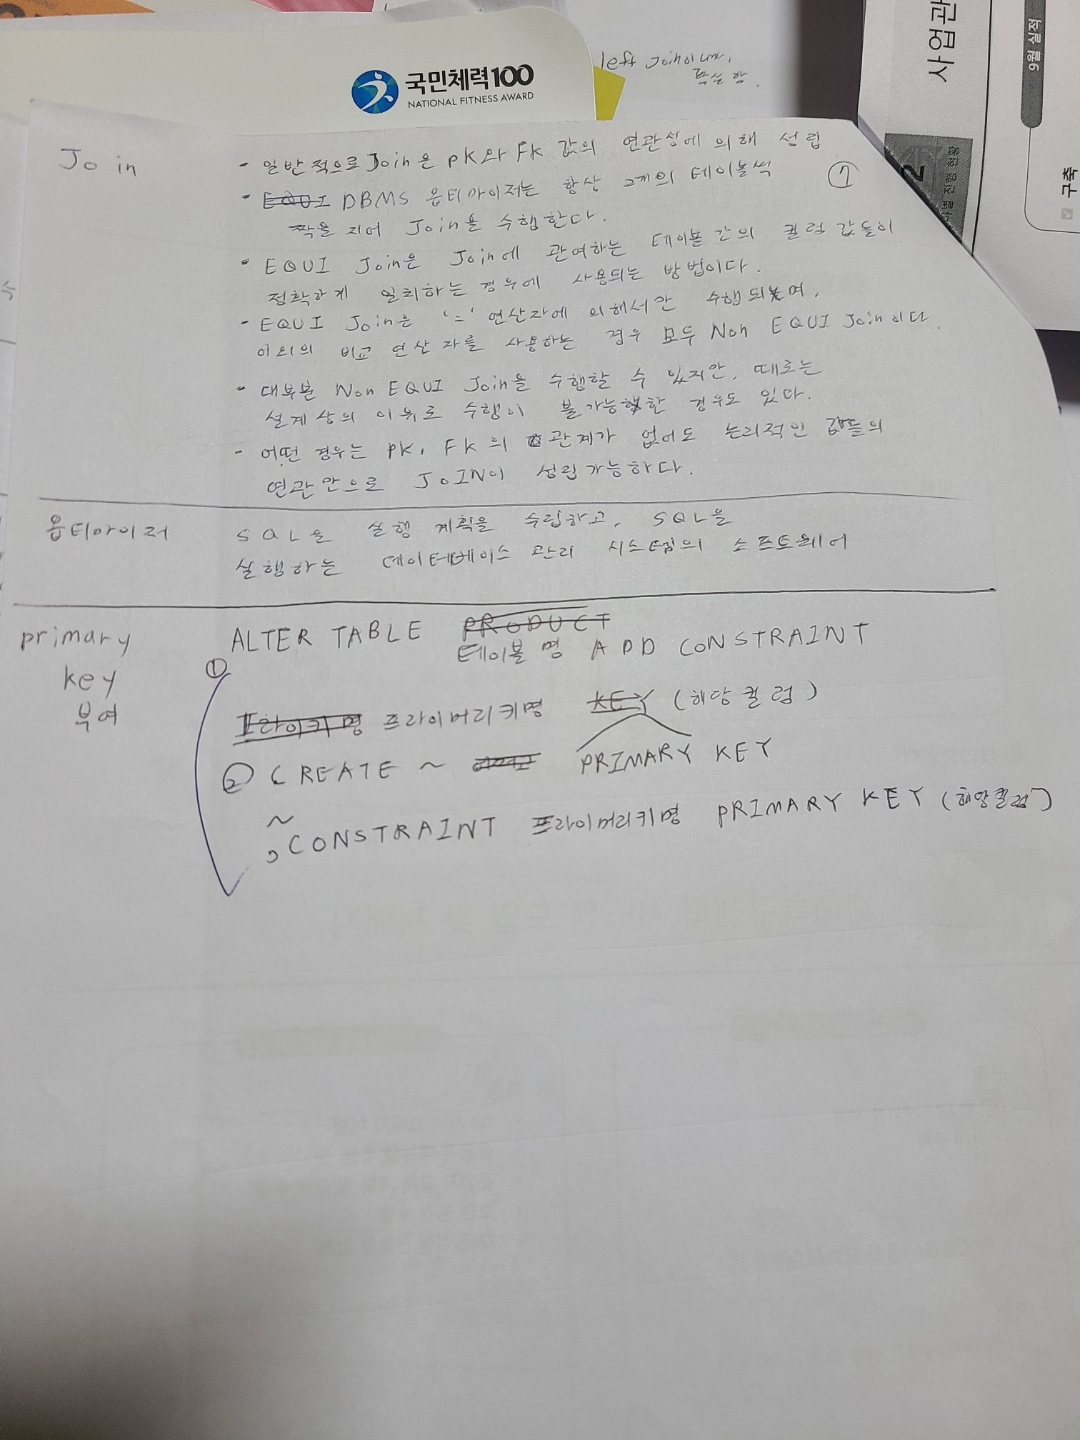 국민체력100
NATIONAL FITNESS AWARD
left Join이
사업관
9월 실적
구축
2
Join
- 일반적으로 Join은 PK와 FK 값의 연관성에 의해 성립
⑦
- EQUI DBMS 옵티마이저는 항상 2개의 테이블씩
짝을 지어 Join을 수행한다.
- EQUI Join은 Join에 관여하는 테이블 간의 컬럼 값들이
정확하게 일치하는 경우에 사용되는 방법이다.
- EQUI Join은 '=' 연산자에 의해서만 수행되며,
이외의 비교 연산자를 사용하는 경우 모두 Non EQUI Join이다.
- 대부분 Non EQUI Join을 수행할 수 있지만, 때로는
설계상의 이유로 수행이 불가능한 경우도 있다.
- 어떤 경우는 PK, FK의 관계가 없어도 논리적인 값들의
연관만으로 JOIN이 성립 가능하다.
옵티마이저
SQL을 실행 계획을 수립하고, SQL을
실행하는 데이터베이스 관리 시스템의 소프트웨어
primary
key
부여
① ALTER TABLE PRODUCT
테이블 명 ADD CONSTRAINT
프라이키명 프라이머리키명 KEY (해당 컬럼)
PRIMARY KEY
② CREATE ~
~
, CONSTRAINT 프라이머리키명 PRIMARY KEY (해당컬럼)